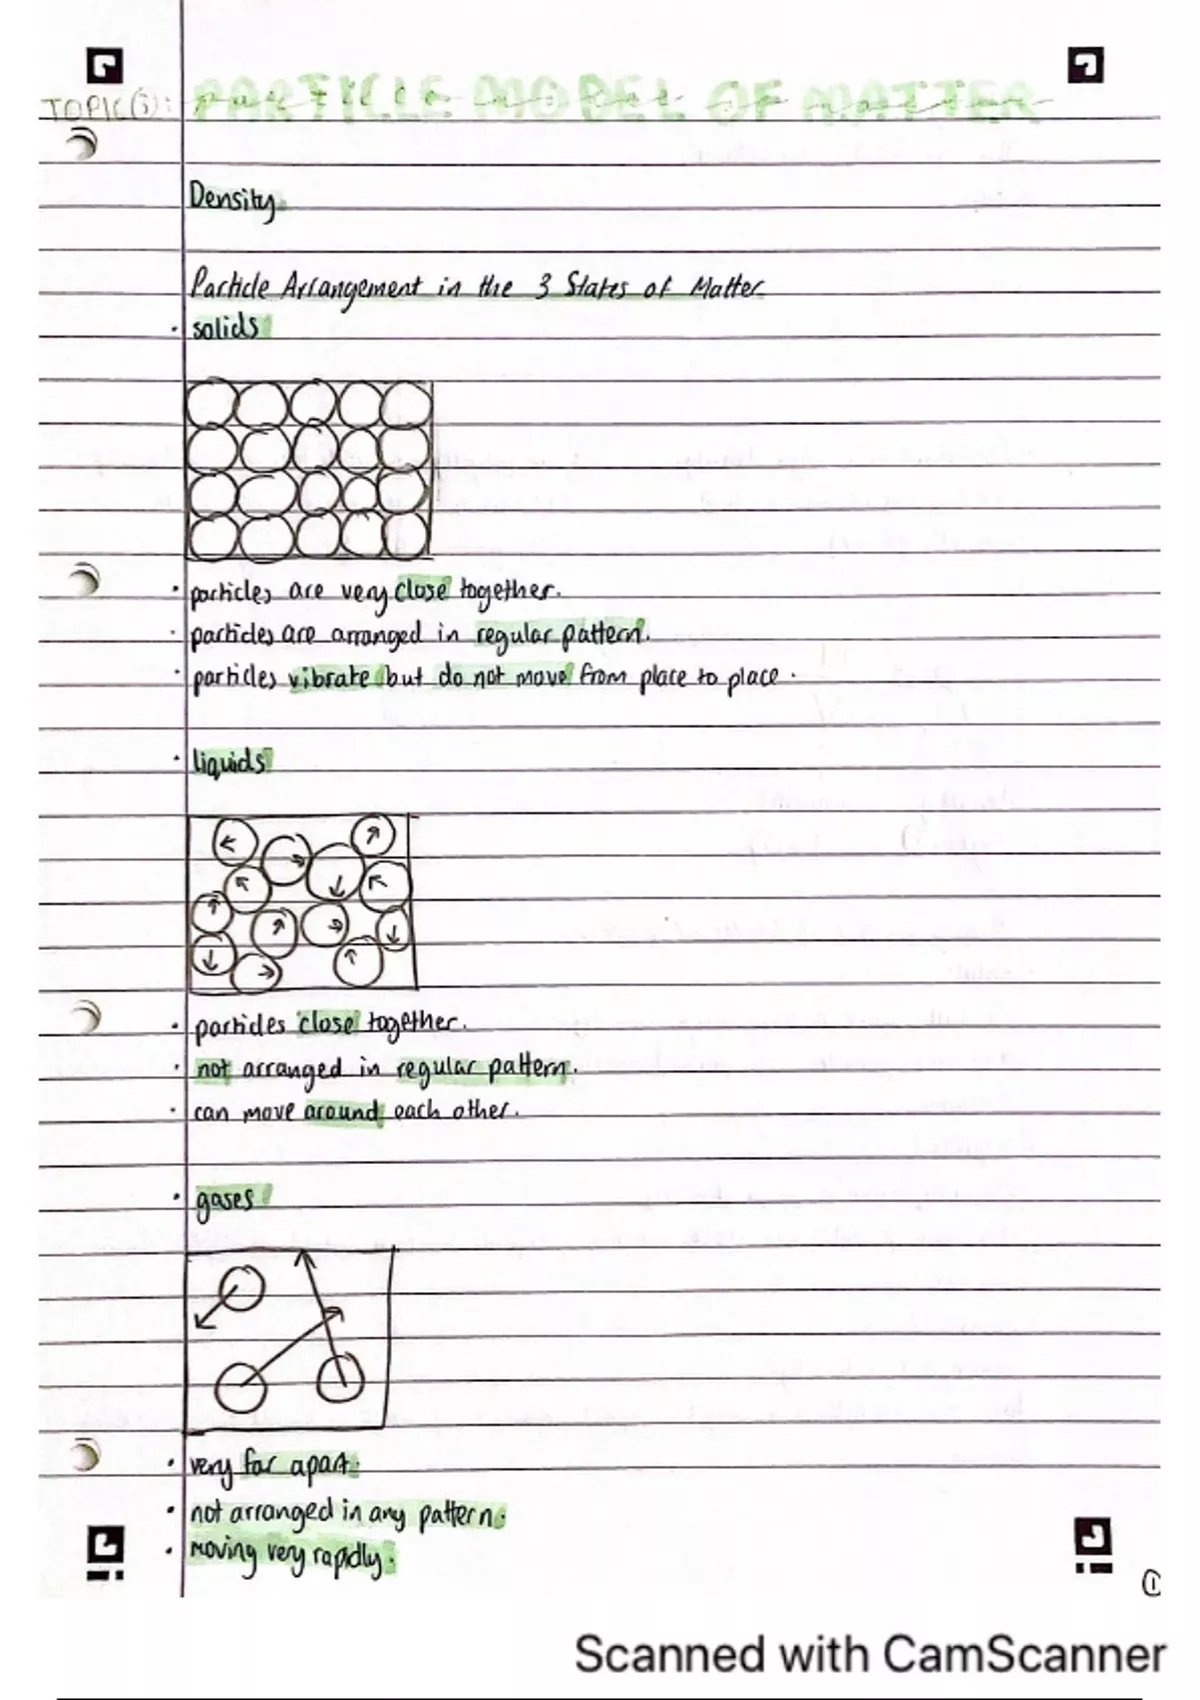 TOPIC(3): PARTICLE MODEL OF MATTER
Density.
Particle Arrangement in the 3 States of Matter
· solids
· particles are very close together.
· particles are arranged in regular pattern.
· particles vibrate but do not move from place to place.
· liquids
· particles close together.
· not arranged in regular pattern.
· can move around each other.
· gases
· very far apart.
· not arranged in any pattern.
· moving very rapidly.
①
Scanned with CamScanner